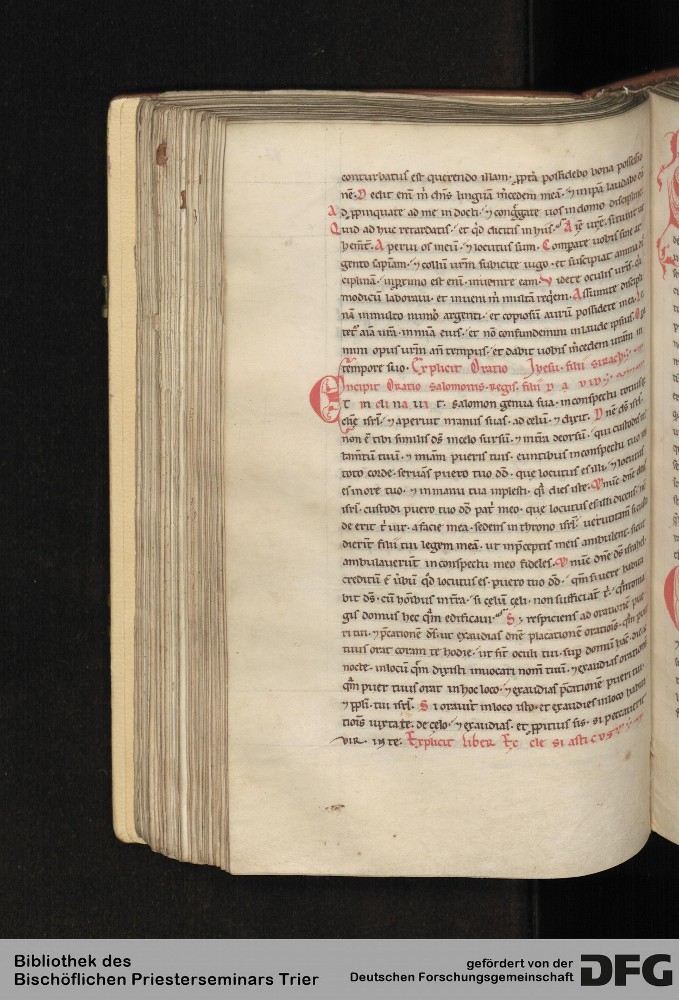 conturbatus est querendo illam. ꝓpt̃a possidebo bona possessio
nẽ. Dedit enĩ m̃ dñs linguã m̃cedem meã. ⁊ inipa laudabo eũ
Adꝓpinquate ad me indocti. ⁊ cong̃gate uos in domo discipline.
Quid ad huc retardatis. et qđ dicitis in hiis. Aĩe ur̃e sitiunt ue
hem̃t. Aperui os meũ. ⁊ locutus sum. Conpate uobis sine ar
gento sapiam. ⁊ collũ ur̃m subicite iugo. et suscipiat anima di
ciplinã. inproximo est enĩ. inuenire eam. Videte oculis ur̃is. qa
modicũ laboraui. et inueni m̃ multã reqẽm. Assumite discipli
nã inmulto numõ argenti. et copiosũ aurũ possidete in ea.
tet̃ aĩa ur̃a. inmĩa eius. et nõ confundemini in laude ipsius. Ope
mini opus ur̃m añ tempus. et dabit uobis m̃cedem ur̃am in
tempore suo. Explicit Oratio Ihesu. filii sirach.
Incipit Oratio salomonis. regis. filii DAVID.
Et inclinauit. salomon genua sua. inconspectu totius
eccl̃ie isrl̃. ⁊ aperuit manus suas. ad celũ. ⁊ dixit. Dñe dš isrl̃.
non ẽ tibi similis dš incelo sursũ. ⁊ int̃ra deorsũ. qui custodis
tam̃tũ tuũ. ⁊ miam pueris tuis. euntibus inconspectu tuo
toto corde. seruãs puero tuo đđ. que locutus es illi. ⁊ locutus
es inore tuo. ⁊ in manu tua inplesti. sic̃ dies iste. Et nũc dñe dš
isrl̃. custodi puero tuo đđ pat̃ meo. que locutus es illi dicens. nõ
de erit t̃ uir. a facie mea. sedens in throno isrl̃. uerũtam̃ si custo
dierint filii tui legem meã. ut inp̃ceptis meis ambulent. sicut
ambulauerũt inconspectu meo fideles. Et nũc dñe dš israhel.
creditũ ẽ ũbũ qđ locutus es. puero tuo đđ. qm̃ si uere habita
bit dš. cũ hõibus int̃ra. si celũ celi. non sufficiãt t̃. q̃ntoma
gis domus hec qm̃ edificaui. Sʒ respiciens ad orationẽ pue
ri tui. ⁊ p̃cationẽ dš. ut exaudias dñe placationẽ orationis. qm̃ puer
tuus orat coram te hodie. ut sint oculi tui. sup̃ domũ hãc. die ac
nocte. inlocũ qm̃ dixisti inuocari nom̃ tuũ. ⁊ exaudias orationẽ
qm̃ puer tuus orat inhoc loco. ⁊ exaudias p̃cationẽ pueri tui.
⁊ ꝓpl̃i. tui isrl̃. Si orauit in loco isto. et exaudies in loco habita
tiois iuxta te. de celo. ⁊ exaudias. et ꝓpitius sis. si peccauerit
vir. in te. Explicit liber Ecclesiasticus
Bibliothek des
Bischöflichen Priesterseminars Trier
gefördert von der
Deutschen Forschungsgemeinschaft
DFG